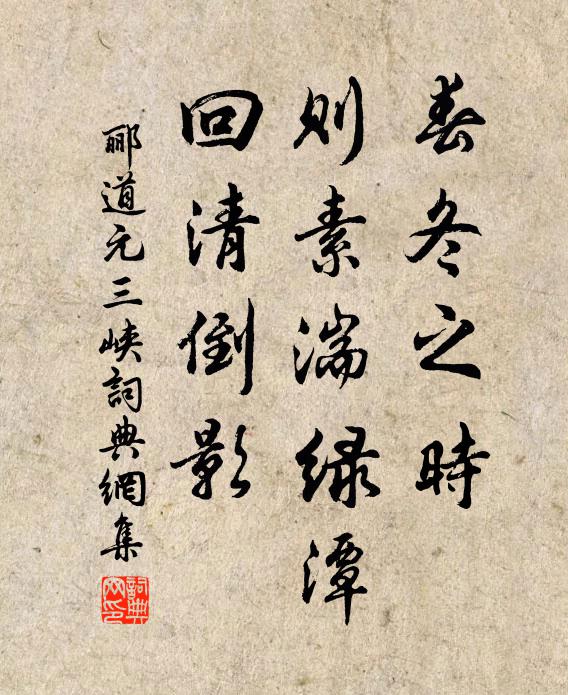 春冬之時
則素湍緑潭
回清倒影
酈道元三峽詞典網集
詞典
网印